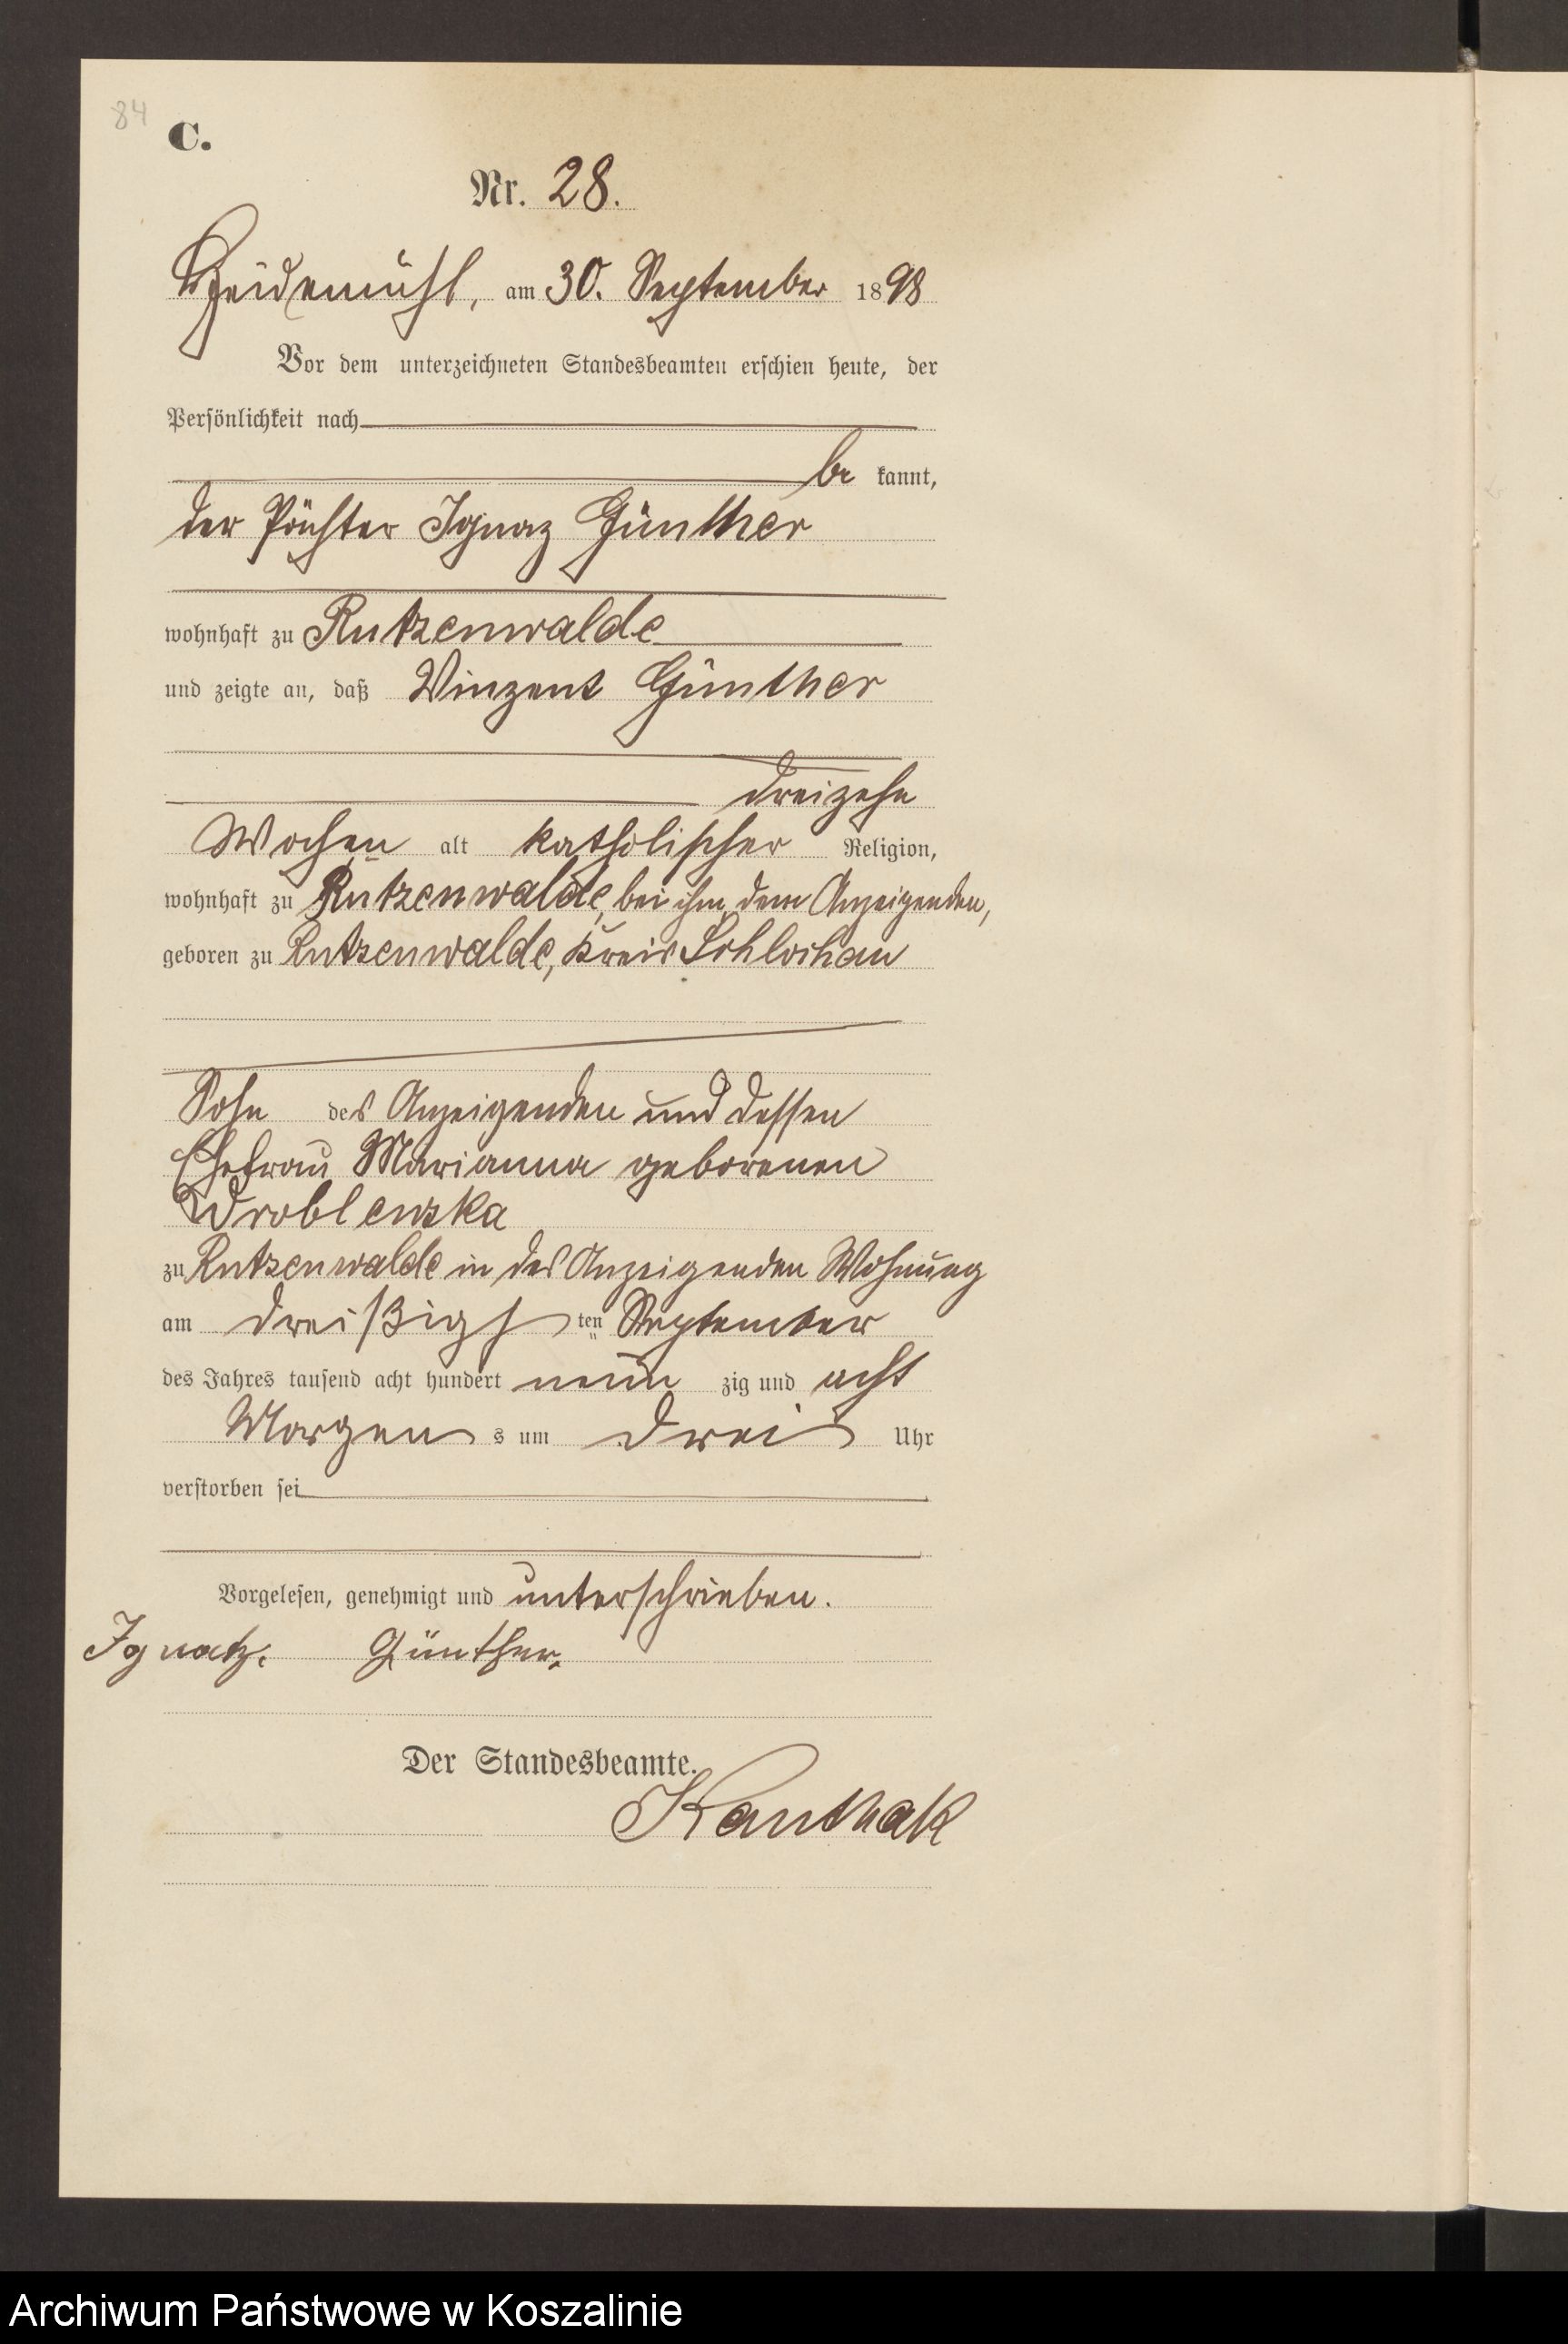 84
C.
Nr. 28.
Heidemühl, am 30. September 1898
Vor dem unterzeichneten Standesbeamten erschien heute, der
Persönlichkeit nach
be kannt,
der Pächter Ignaz Günther
wohnhaft zu Rutzenwalde
und zeigte an, daß Vinzent Günther
dreizehn
Wochen alt katholischer Religion,
wohnhaft zu Rutzenwalde, bei ihm, dem Anzeigenden,
geboren zu Rutzenwalde, Kreis Schlochau
Sohn des Anzeigenden und dessen
Ehefrau Marianna geborenen
Wroblenska
zu Rutzenwalde in des Anzeigenden Wohnung
am dreißigs ten September
des Jahres tausend acht hundert neun zig und acht
Morgen s um drei Uhr
verstorben sei
Vorgelesen, genehmigt und unterschrieben.
Ignatz. Günther.
Der Standesbeamte.
Kanthak
Archiwum Państwowe w Koszalinie